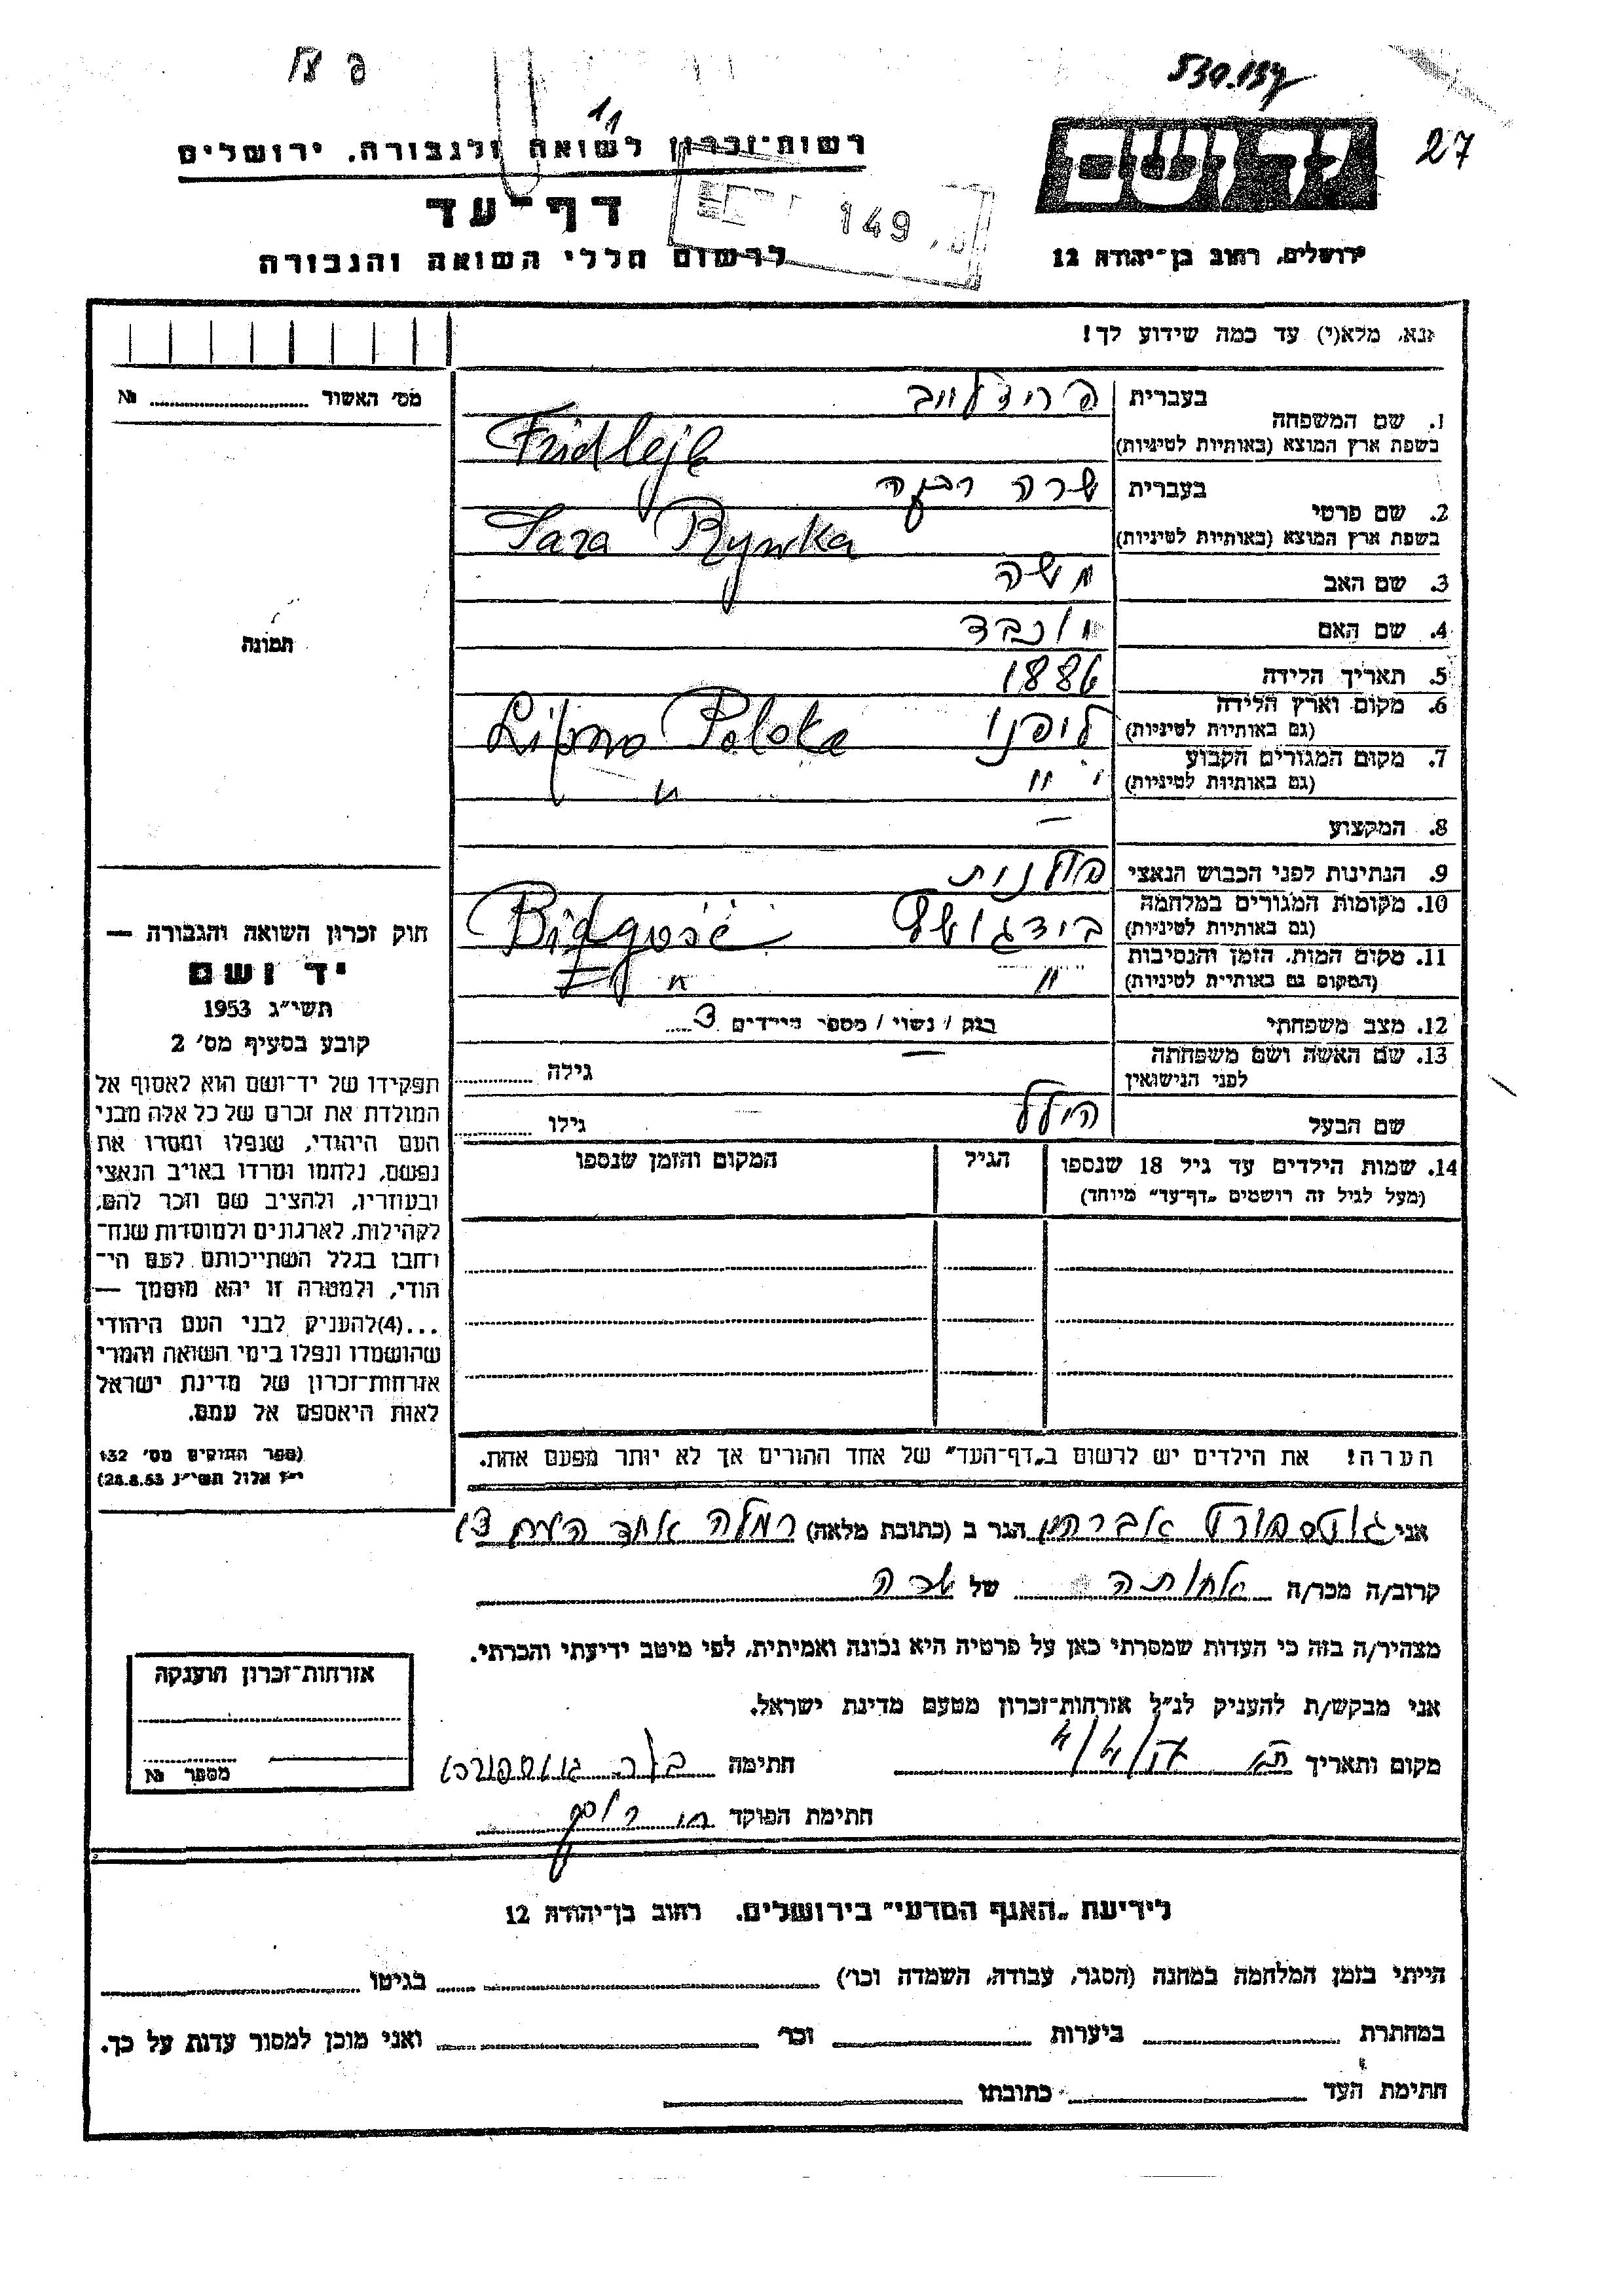 530.137
27
רשות־זכרון לשואה ולגבורה, ירושלים
דף־עד
לרשום חללי השואה והגבורה
149
ירושלים, רחוב בן־יהודה 12
נא, מלא(י) עד כמה שידוע לך!
מס' האשור № 
1. שם המשפחה
בעברית
פרידלייב
בשפת ארץ המוצא (באותיות לטיניות)
Fridlejb
2. שם פרטי
בעברית
שרה רבקה
בשפת ארץ המוצא (באותיות לטיניות)
Sara Rywka
3. שם האב משה
4. שם האם יוכבד
5. תאריך הלידה 1886
6. מקום וארץ הלידה
(גם באותיות לטיניות)
ליפנו Lipno Polska
7. מקום המגורים הקבוע
(גם באותיות לטיניות)
" "
8. המקצוע —
9. הנתינות לפני הכבוש הנאצי פולנית
10. מקומות המגורים במלחמה
(גם באותיות לטיניות)
בידגושץ Bidgość
11. מקום המות, הזמן והנסיבות
(המקום גם באותיות לטיניות)
" "
12. מצב משפחתי רווק / נשוי / מספר הילדים 3
13. שם האשה ושם משפחתה
לפני הנישואין
— גילה
שם הבעל הילל גילו
14. שמות הילדים עד גיל 18 שנספו
(מעל לגיל זה רושמים „דף־עד" מיוחד)
הגיל
המקום והזמן שנספו
הערה! את הילדים יש לרשום ב„דף־העד" של אחד ההורים אך לא יותר מפעם אחת.
תמונה
חוק זכרון השואה והגבורה —
יד ושם
תשי"ג 1953
קובע בסעיף מס' 2
תפקידו של יד־ושם הוא לאסוף אל
המולדת את זכרם של כל אלה מבני
העם היהודי, שנפלו ומסרו את
נפשם, נלחמו ומרדו באויב הנאצי
ובעוזריו, ולהציב שם וזכר להם,
לקהילות, לארגונים ולמוסדות שנח־
רחבו בגלל השתייכותם לעם הי־
הודי, ולמטרה זו יהא מוסמך —
...(4)להעניק לבני העם היהודי
שהושמדו ונפלו בימי השואה והמרי
אזרחות־זכרון של מדינת ישראל
לאות היאספם אל עמם.
(ספר החוקים מס' 132
י"ז אלול תשי"ג 28.8.53)
אני גוטספורט אברהם הגר ב (כתובת מלאה) רמלה אחד העם
קרוב/ה מכר/ה אחותה של שרה
מצהיר/ה בזה כי העדות שמסרתי כאן על פרטיה היא נכונה ואמיתית, לפי מיטב ידיעתי והכרתי.
אני מבקש/ת להעניק לנ"ל אזרחות־זכרון מטעם מדינת ישראל.
מקום ותאריך חתימה בלה
חתימת הפוקד
אזרחות־זכרון הוענקה
מספר №
לידיעת „האגף המדעי" בירושלים, רחוב בן־יהודה 12
הייתי בזמן המלחמה במחנה (הסגר, עבודה, השמדה וכו') בגיטו
במחתרת ביערות וכו' ואני מוכן למסור עדות על כך.
חתימת העד כתובתו